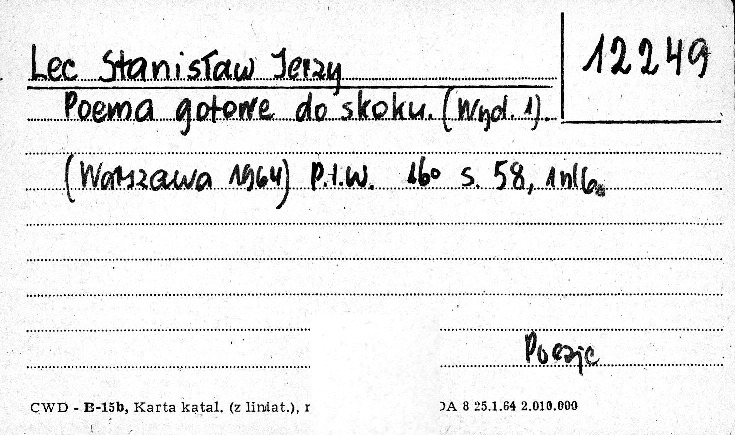 Lec Stanisław Jerzy
12249
Poema gotowe do skoku. (Wyd. 1).
(Warszawa 1964) P.I.W. 16° s. 58, 1 nlb.
Poezje
CWD - B-15b, Karta katal. (z liniat.), r
DA 8 25.1.64 2.010.000